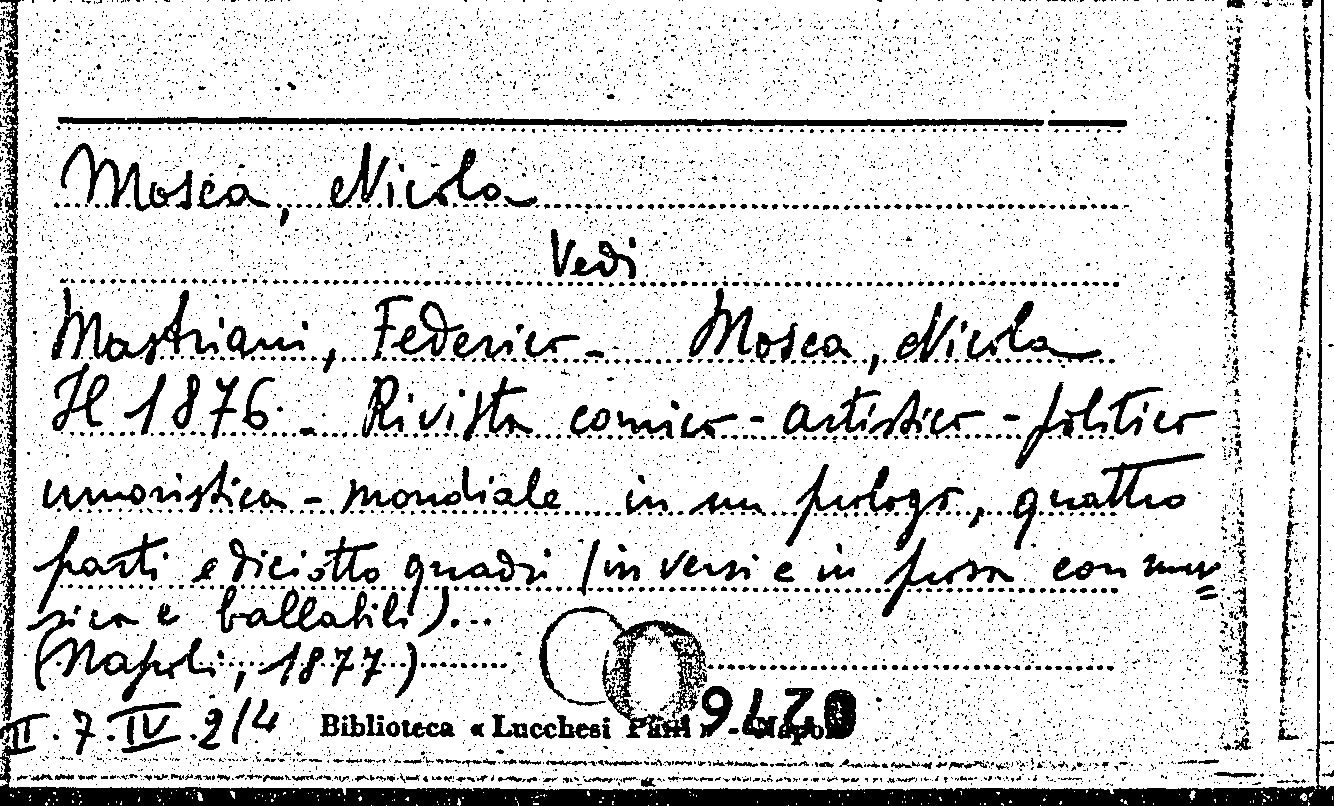 Mosca, Nicola
Vedi
Mastriani, Federico - Mosca, Nicola
Il 1876. - Rivista comico - artistico - politico
umoristica - mondiale in un prologo, quattro
parti e diciotto quadri (in versi e in prosa con mu=
sica e ballabili)...
(Napoli, 1877)
II.7.IV.2/4 Biblioteca « Lucchesi Palli » - Napoli